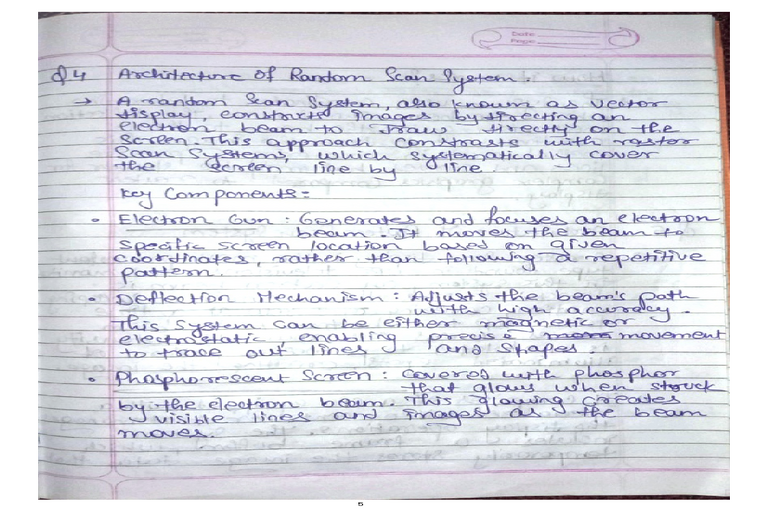 Q4 Architecture of Random Scan System.
→ A random Scan System, also known as vector
display, constructs images by directing an
electron beam to draw directly on the
Screen. This approach constrasts with rastor
Scan Systems, which systematically cover
the screen line by line.
Key Components:-
• Electron Gun : Generates and focuses an electron
beam. It moves the beam to
specific screen location based on given
coordinates, rather than following a repetitive
pattern.
• Deflection Mechanism : Adjusts the beam's path
with high accuracy.
This System can be either magnetic or
electrostatic, enabling precise movement
to trace out lines and shapes.
• Phosphorescent Screen : Covered with phosphor
that glows when struck
by the electron beam. This glowing creates
visible lines and images as the beam
moves.
5